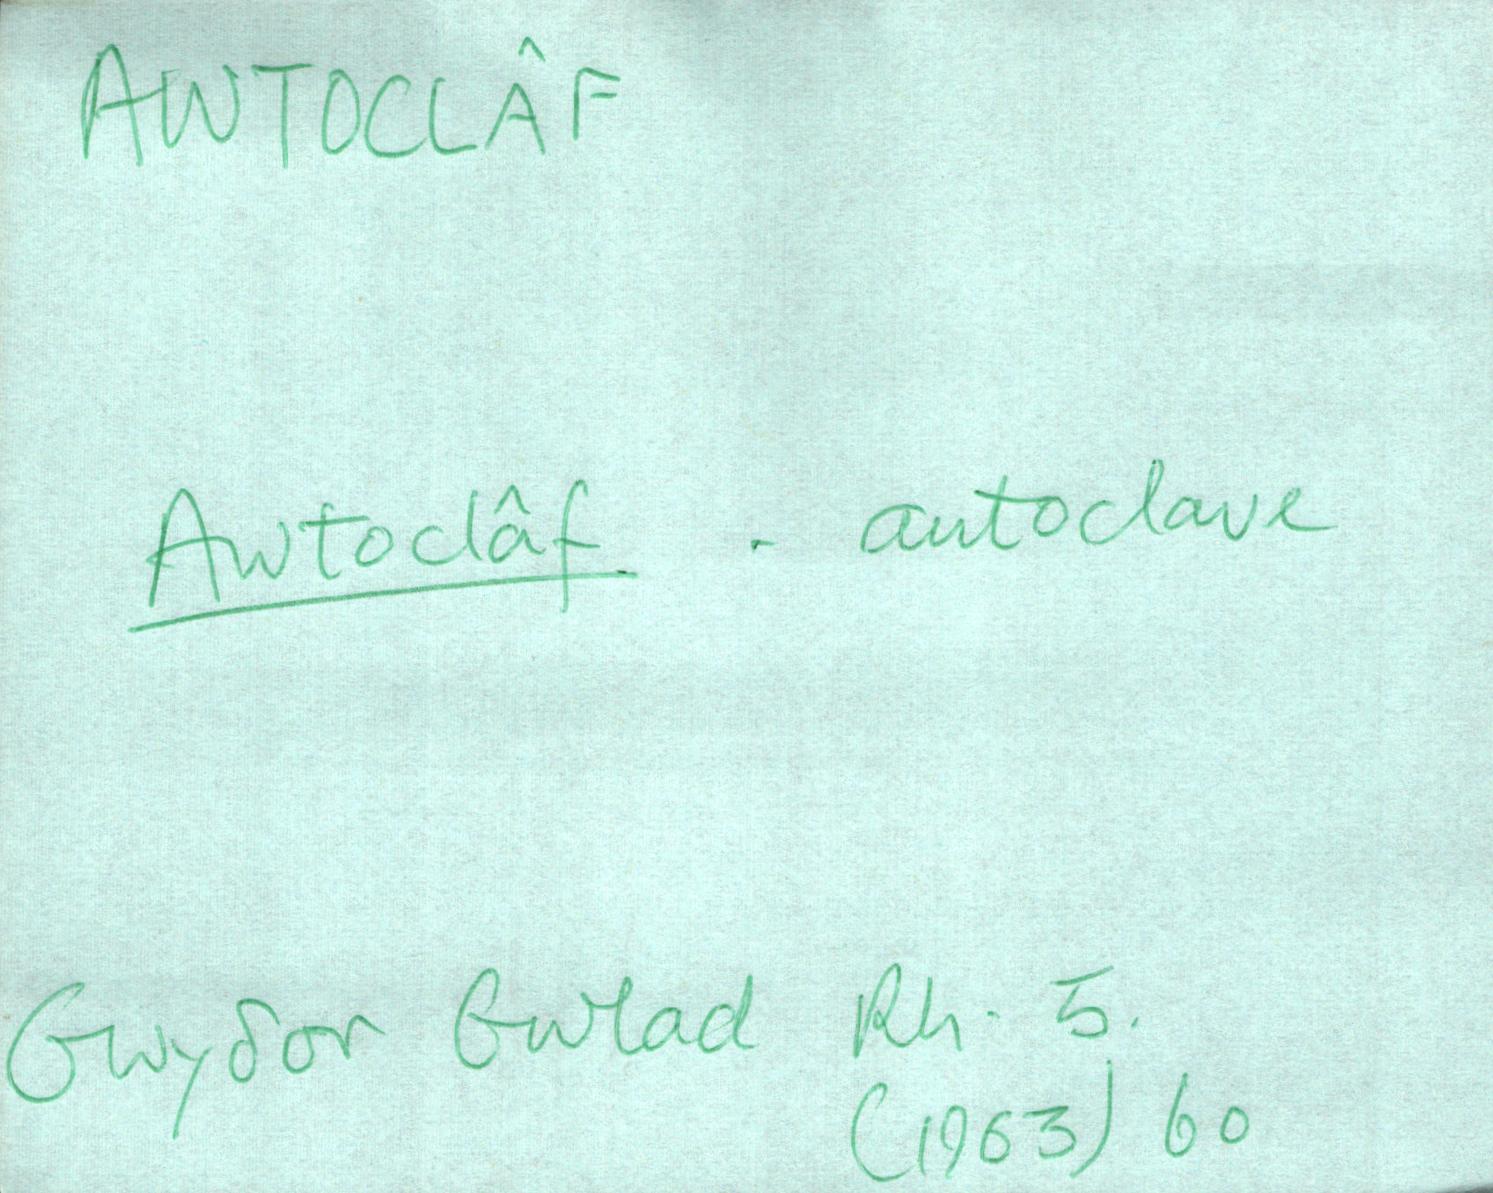 AWTOCLÂF
Awtoclâf. - autoclave
Gwyδor Gwlad Rh. 5.
(1963) 60